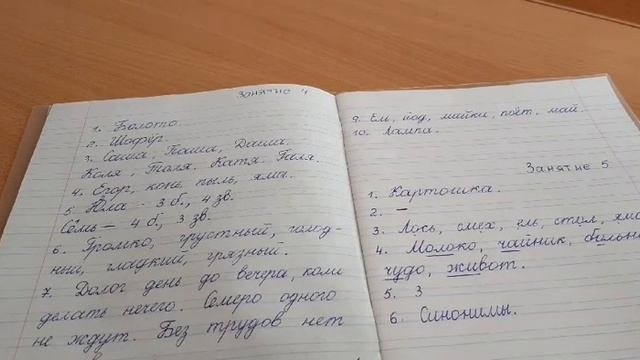 Занятие 4
1. Болото.
2. Шофёр.
3. Саша, Паша, Даша.
Коля, Толя. Катя. Галя.
4. Егор, конь, пыль, яма.
5. Юла - 3 б, 4 зв.
Семь - 4 б, 3 зв.
6. Громко, грустный, голод-
ный, гладкий, грязный.
7. Долог день до вечера, коли
делать нечего. Семеро одного
не ждут. Без трудов нет
9. Ем, йод, майка, поёт, май.
10. Лампа.
Занятие 5
1. Картошка.
2. —
3. Лось, смех, ель, стол,
4. Молоко, чайник,
чудо, живот.
5. 3
6. Синонимы.